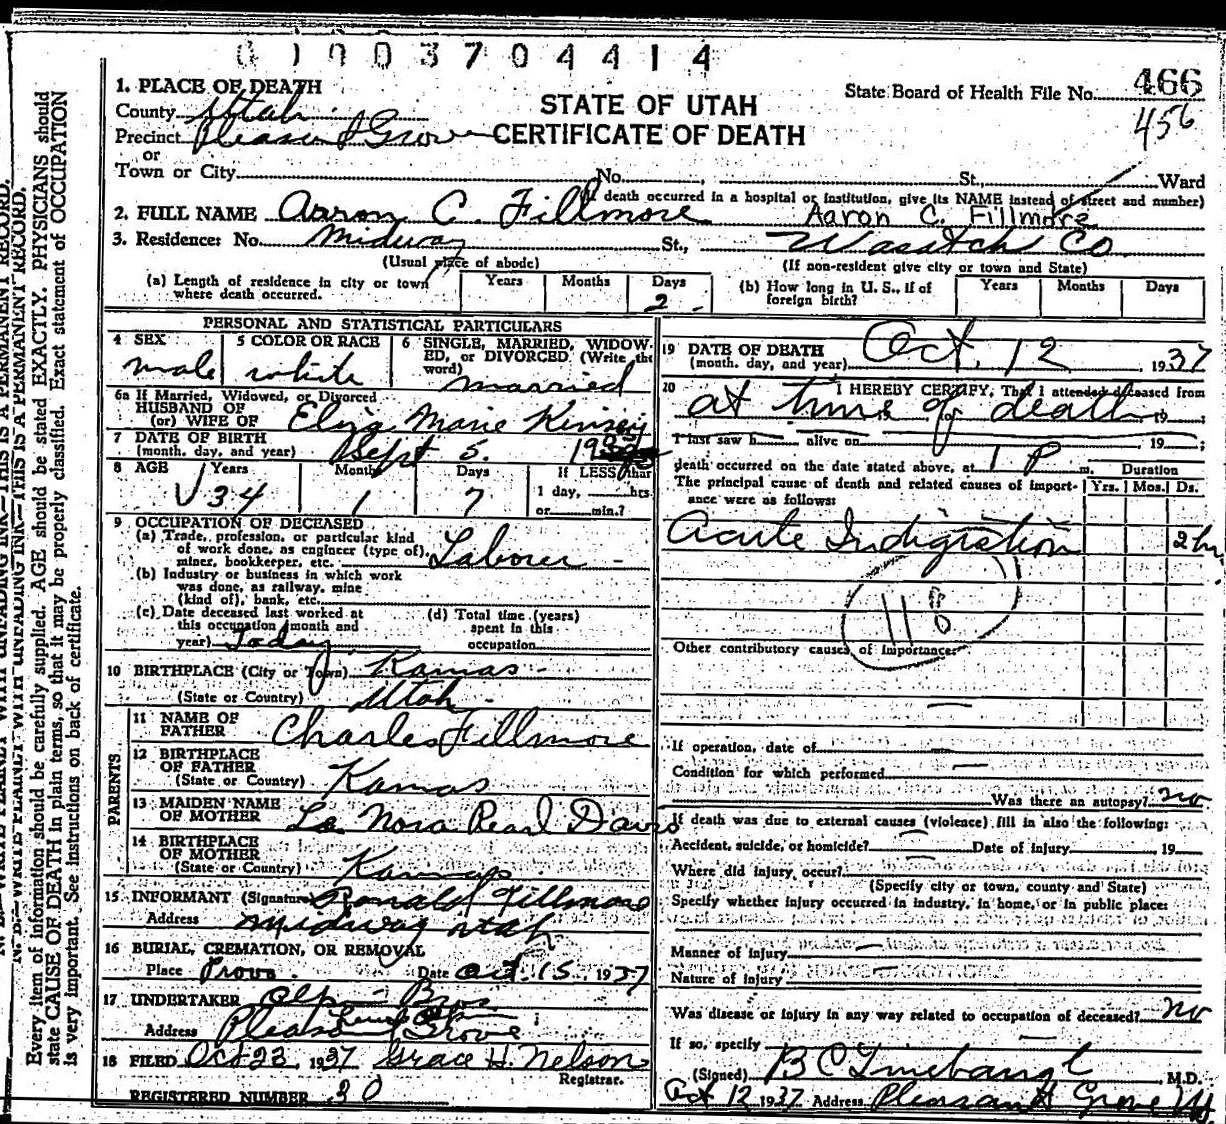 01003704414
1. PLACE OF DEATH
State Board of Health File No. 466
456
County Utah
STATE OF UTAH
Precinct Pleasant Grove
CERTIFICATE OF DEATH
or
Town or City No. , St., Ward
(If death occurred in a hospital or institution, give its NAME instead of street and number)
2. FULL NAME Aaron C. Fillmore Aaron C. Fillmore
3. Residence: No. Midway St., Wasatch Co.
(Usual place of abode) (If non-resident give city or town and State)
(a) Length of residence in city or town where death occurred. Years Months Days 2
(b) How long in U. S., if of foreign birth? Years Months Days
PERSONAL AND STATISTICAL PARTICULARS
4 SEX male
5 COLOR OR RACE white
6 SINGLE, MARRIED, WIDOWED, or DIVORCED (Write the word) married
6a If Married, Widowed, or Divorced
HUSBAND OF
(or) WIFE OF Eliza Marie Kinsey
7 DATE OF BIRTH
(month, day, and year) Sept 5.
8 AGE Years Months Days If LESS than
34 1 7 1 day, hrs.
or min.?
9 OCCUPATION OF DECEASED
(a) Trade, profession, or particular kind
of work done, as engineer (type of),
miner, bookkerper, etc. Laborer
(b) Industry or business in which work
was done, as railway, mine
(kind of), bank, etc.
(c) Date deceased last worked at
this occupation (month and
year) Today
(d) Total time (years)
spent in this
occupation
10 BIRTHPLACE (City or Town) Kamas
(State or Country) Utah
PARENTS
11 NAME OF
FATHER Charles Fillmore
12 BIRTHPLACE
OF FATHER
(State or Country) Kamas
13 MAIDEN NAME
OF MOTHER La Nora Pearl Davis
14 BIRTHPLACE
OF MOTHER
(State or Country) Kamas
15 INFORMANT (Signature) Ronald Fillmore
Address Midway Utah
16 BURIAL, CREMATION, OR REMOVAL
Place Provo. Date Oct. 15 1937
17 UNDERTAKER Olpin Bros
Address Pleasant Grove
18 FILED Oct 23, 1937 Grace H. Nelson
Registrar.
REGISTERED NUMBER 30
19 DATE OF DEATH
(month, day, and year) Oct. 12 1937
20 I HEREBY CERTIFY, That I attended deceased from
at time of death, 19 ;
I last saw h alive on , 19 ;
death occurred on the date stated above, at 1 P m. Duration
The principal cause of death and related causes of importance were as follows: Yrs. Mos. Ds.
Acute Indigestion 2 hr.
118
Other contributory causes of importance:
If operation, date of
Condition for which performed
Was there an autopsy? no
If death was due to external causes (violence) fill in also the following:
Accident, suicide, or homicide? Date of injury 19
Where did injury occur?
(Specify city or town, county and State)
Specify whether injury occurred in industry, in home, or in public place:
Manner of injury
Nature of injury
Was disease or injury in any way related to occupation of deceased? no
If so, specify
(Signed) B C Linebaugh M.D.
Oct 12 1937 Address Pleasant Grove Ut.
N. B.—WRITE PLAINLY WITH UNFADING INK—THIS IS A PERMANENT RECORD.
Every item of information should be carefully supplied. AGE should be stated EXACTLY. PHYSICIANS should
state CAUSE OF DEATH in plain terms, so that it may be properly classified. Exact statement of OCCUPATION
is very important. See instructions on back of certificate.